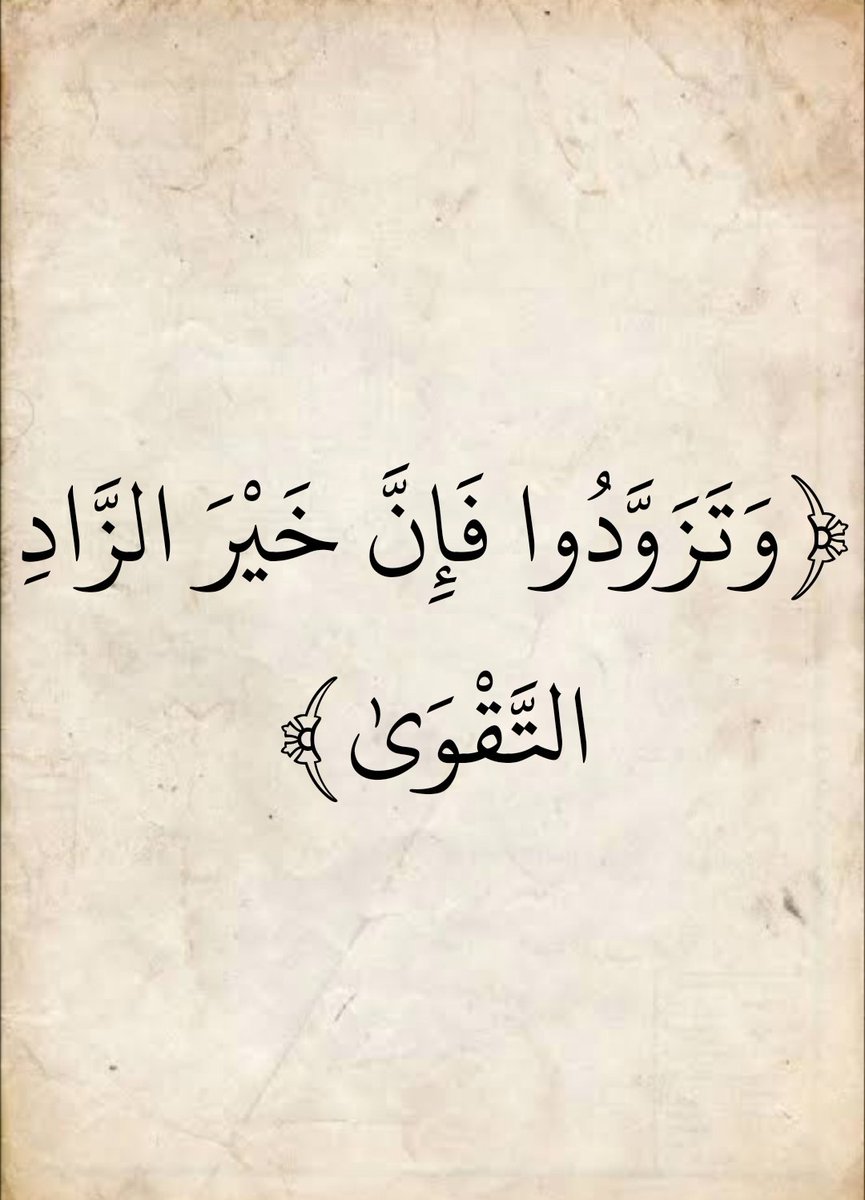 ﴿وَتَزَوَّدُوا فَإِنَّ خَيْرَ الزَّادِ
التَّقْوَىٰ ﴾